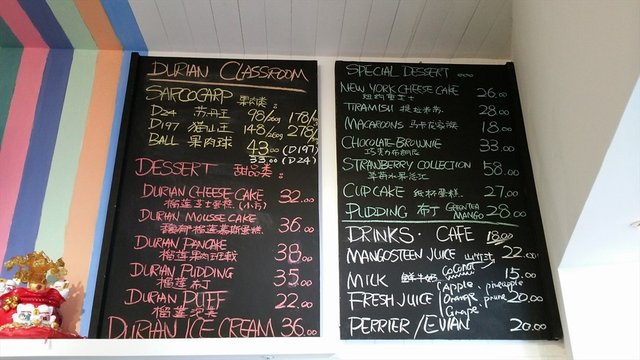 DURIAN CLASSROOM
SARCOCARP 果肉类:
D24 苏丹王 98/ 178/
D197 猫山王 148/ 278/
BALL 果肉球 43.00 (D197)
33.00 (D24)
DESSERT 甜品类:
DURIAN CHEESE CAKE 32.00
榴莲芝士蛋糕 (小方)
DURIAN MOUSSE CAKE 36.00
榴莲慕斯蛋糕
DURIAN PANCAKE 38.00
榴莲果肉班戟
DURIAN PUDDING 35.00
榴莲布丁
DURIAN PUFF 22.00
榴莲泡芙
DURIAN ICE CREAM 36.00
SPECIAL DESSERT
NEW YORK CHEESE CAKE 26.00
纽约重芝士
TIRAMISU 提拉米苏 28.00
MACAROONS 马卡龙 18.00
CHOCOLATE-BROWNIE 33.00
巧克力布朗尼
STRANBERRY COLLECTION 58.00
草莓水果
CUPCAKE 纸杯蛋糕 27.00
PUDDING 布丁 GREENTEA MANGO 28.00
DRINKS. CAFE 18.00
MANGOSTEEN JUICE 山竹汁 22.00
MILK 鲜牛奶 Coconut 15.00
FRESH JUICE (Apple, pineapple 20.00
Orange, prune
Grape
PERRIER/EVIAN 20.00